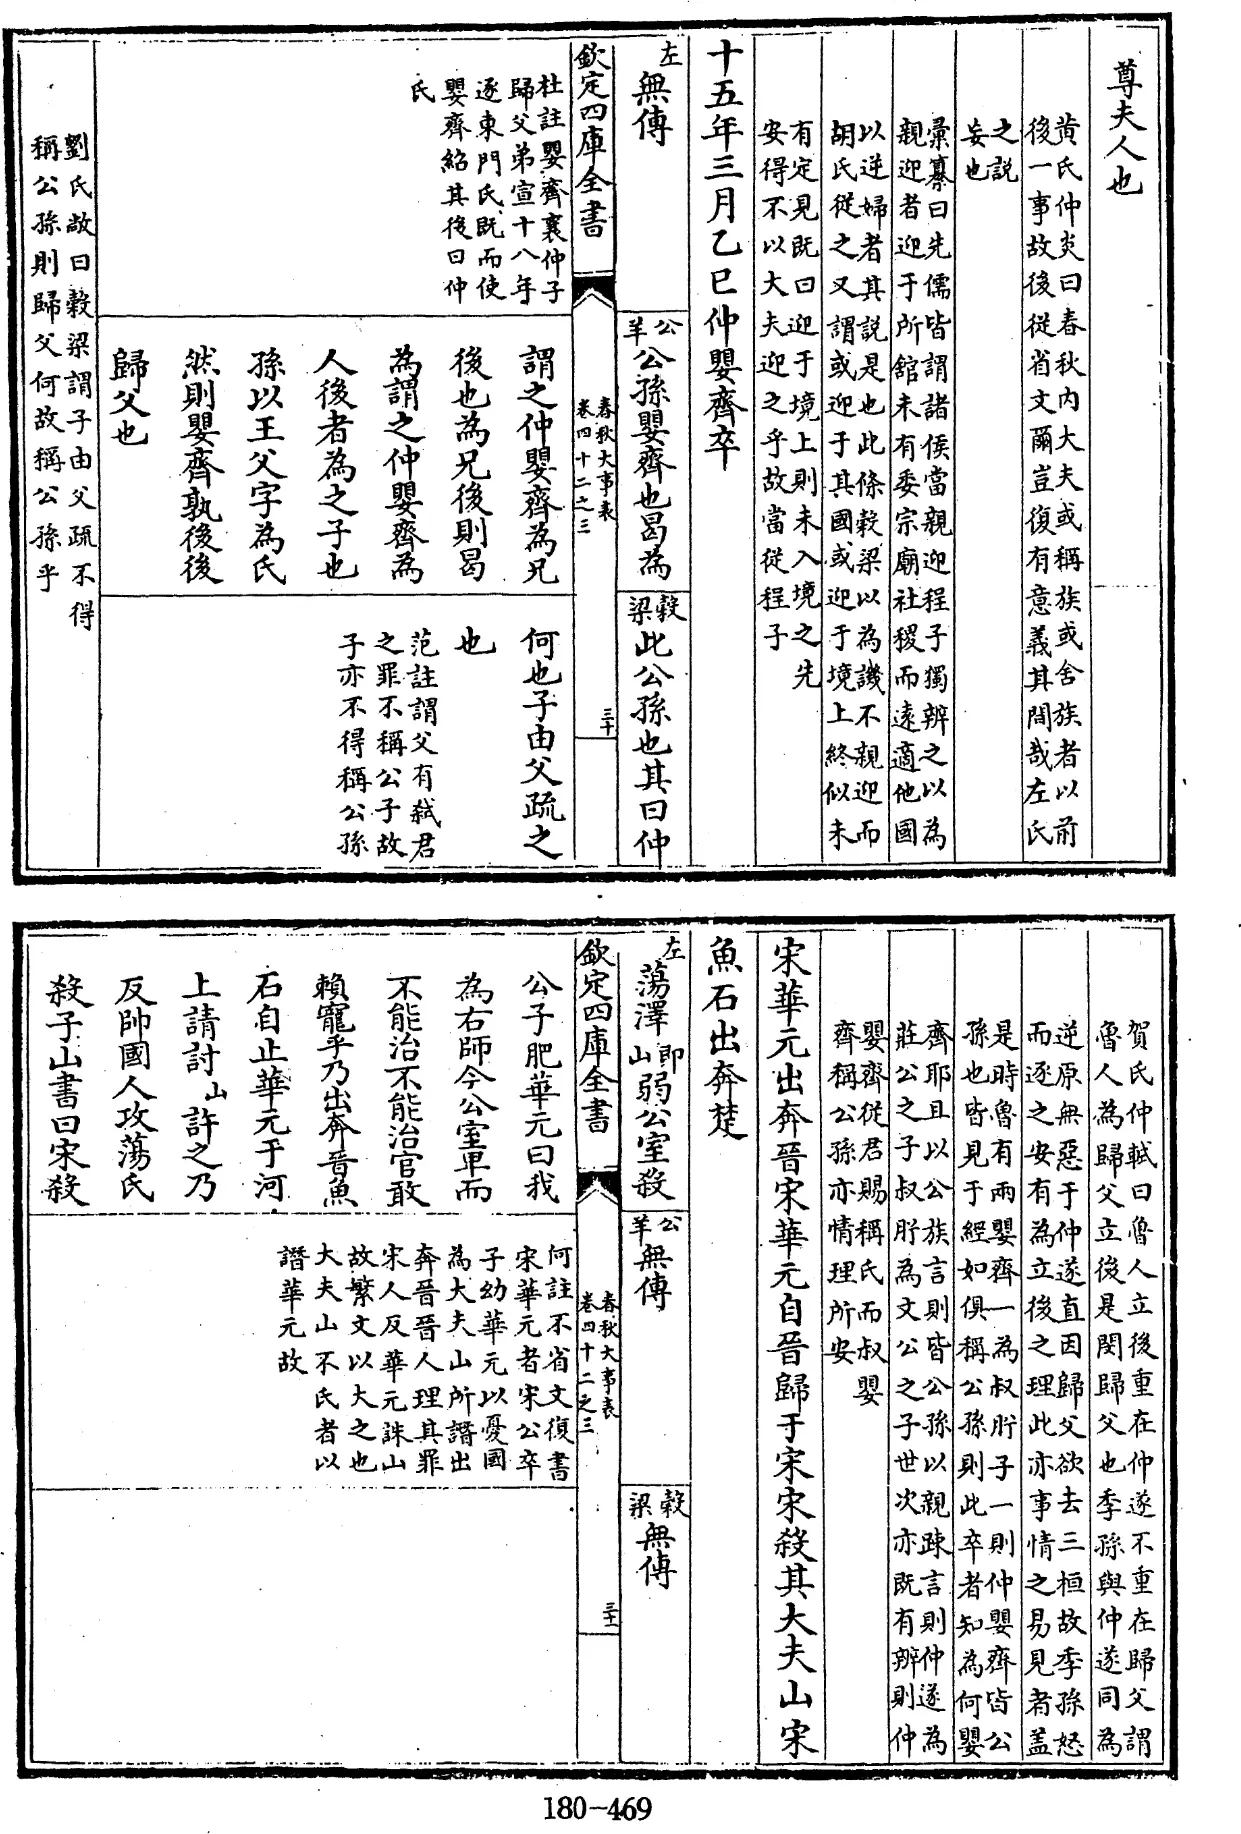 尊夫人也
黄氏仲炎曰春秋内大夫或稱族或舍族者以前
後一事故後從省文爾豈復有意義其間哉左氏
之説
妄也
彚纂曰先儒皆謂諸侯當親迎程子獨辨之以為
親迎者迎于所館未有委宗廟社稷而遠適他國
以逆婦者其説是也此條穀梁以為譏不親迎而
胡氏從之又謂或迎于其國或迎于境上終似未
有定見既曰迎于境上則未入境之先
安得不以大夫迎之乎故當從程子
十五年三月乙巳仲嬰齊卒
左
無傳
公
羊
公孫嬰齊也曷為
穀
梁
此公孫也其曰仲
欽定四庫全書
春秋大事表
卷四十二之三
三十
杜註嬰齊襄仲子
歸父弟宣十八年
逐東門氏既而使
嬰齊紹其後曰仲
氏
謂之仲嬰齊為兄
後也為兄後則曷
為謂之仲嬰齊為
人後者為之子也
孫以王父字為氏
然則嬰齊孰後後
歸父也
何也子由父疏之
也
范註謂父有弑君
之罪不稱公子故
子亦不得稱公孫
劉氏敞曰穀梁謂子由父疏不得
稱公孫則歸父何故稱公孫乎
賀氏仲軾曰魯人立後重在仲遂不重在歸父謂
魯人為歸父立後是閔歸父也季孫與仲遂同為
逆原無惡于仲遂直因歸父欲去三桓故季孫怒
而逐之安有為立後之理此亦事情之易見者盖
是時魯有兩嬰齊一為叔肸子一則仲嬰齊皆公
孫也皆見于經如俱稱公孫則此卒者知為何嬰
齊耶且以公族言則皆公孫以親疎言則仲遂為
莊公之子叔肸為文公之子世次亦既有辨則仲
嬰齊從君賜稱氏而叔嬰
齊稱公孫亦情理所安
宋華元出奔晉宋華元自晉歸于宋宋殺其大夫山宋
魚石出奔楚
左
蕩澤
即
山
弱公室殺
公
羊
無傳
穀
梁
無傳
欽定四庫全書
春秋大事表
卷四十二之三
三十一
公子肥華元曰我
為右師今公室卑而
不能治不能治官敢
賴寵乎乃出奔晉魚
石自止華元于河
上請討山許之乃
反帥國人攻蕩氏
殺子山書曰宋殺
何註不省文復書
宋華元者宋公卒
子幼華元以憂國
為大夫山所譖出
奔晉晉人理其罪
宋人反華元誅山
故繁文以大之也
大夫山不氏者以
譖華元故
180-469